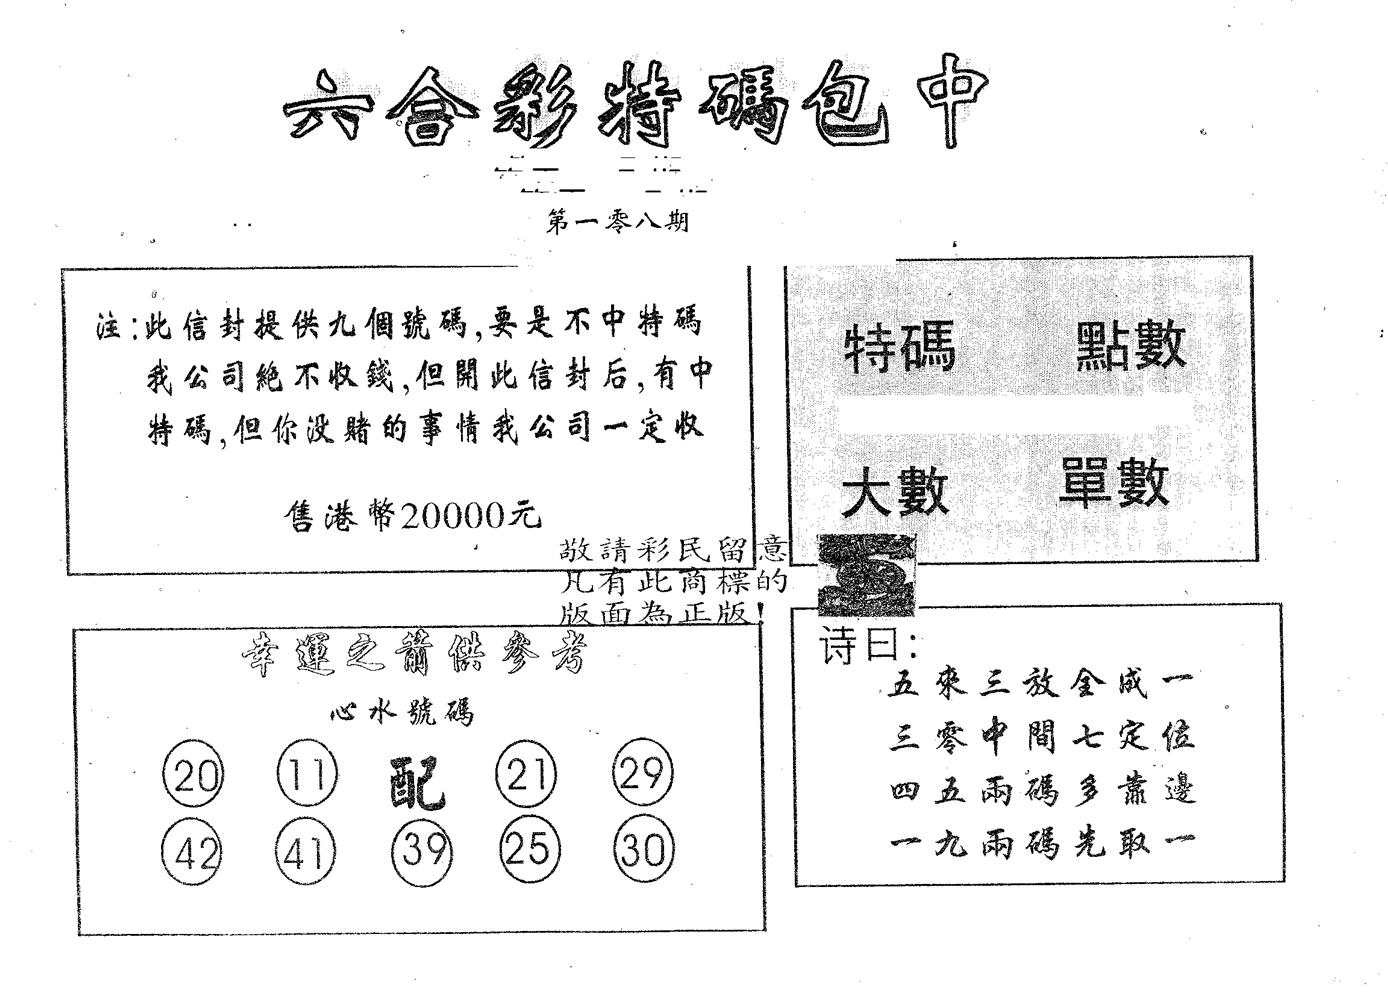 六合彩特碼包中
第一零八期
注:此信封提供九個號碼,要是不中特碼
我公司絕不收錢,但開此信封后,有中
特碼,但你没賭的事情我公司一定收
售港幣20000元
特碼 點數
大數 單數
敬請彩民留意
凡有此商標的
版面為正版!
幸運之箭供參考
心水號碼
20 11 配 21 29
42 41 39 25 30
诗曰:
五來三放全成一
三零中間七定位
四五兩碼多靠邊
一九兩碼先取一